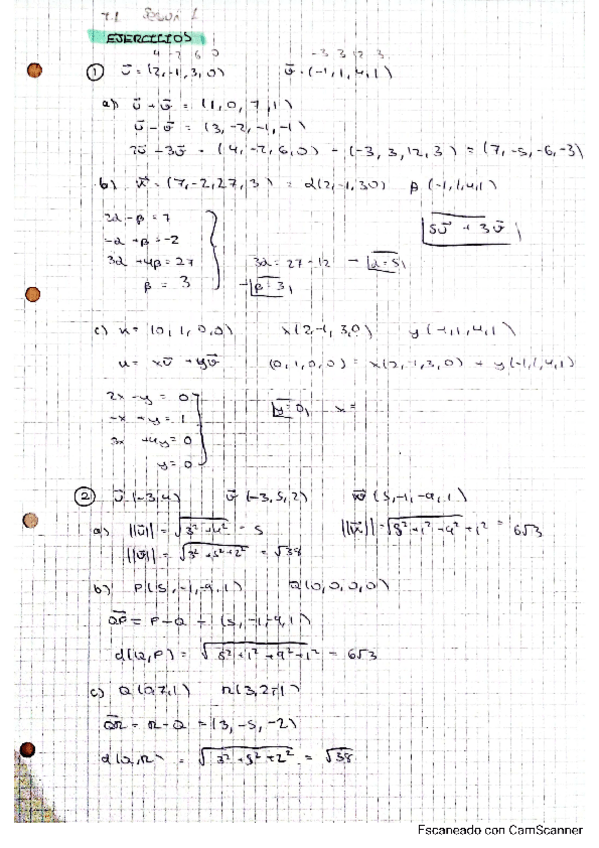 7.1 Sesión 1
EJERCICIOS
4 -2 6 0 -3 3 12 3
① u⃗ = (2,-1,3,0) v⃗ = (-1,1,4,1)
a) u⃗ + v⃗ = (1,0,7,1)
u⃗ - v⃗ = (3,-2,-1,-1)
2u⃗ - 3v⃗ = (4,-2,6,0) - (-3,3,12,3) = (7,-5,-6,-3)
b) x⃗ = (7,-2,27,3) = α(2,-1,3 0) β(-1,1,4,1)
2α - β = 7
5u⃗ + 3v⃗
-α + β = -2
3α + 4β = 27 3α = 27 - 12 → α = 5
β = 3 → β = 3
c) u = (0,1,0,0) x(2,-1,3,0) y(-1,1,4,1)
u = xu⃗ + yv⃗ (0,1,0,0) = x(2,-1,3,0) + y(-1,1,4,1)
2x - y = 0 y = 0, x =
-x + y = 1
3x + 4y = 0
y = 0
② u⃗ (-3,4) v⃗ (-3,5,2) w⃗ (5,-1,-9,1)
a) ||u⃗|| = √3²+4² = 5 ||w⃗|| = √5²+1²+9²+1² = 6√3
||v⃗|| = √3²+5²+2² = √38
b) P(5,-1,-9,1) Q(0,0,0,0)
QP = P - Q = (5,-1,-9,1)
d(Q,P) = √5²+1²+9²+1² = 6√3
c) Q(0,7,1) R(3,2,-1)
QR = R - Q = (3,-5,-2)
d(Q,R) = √3²+5²+2² = √38
Escaneado con CamScanner